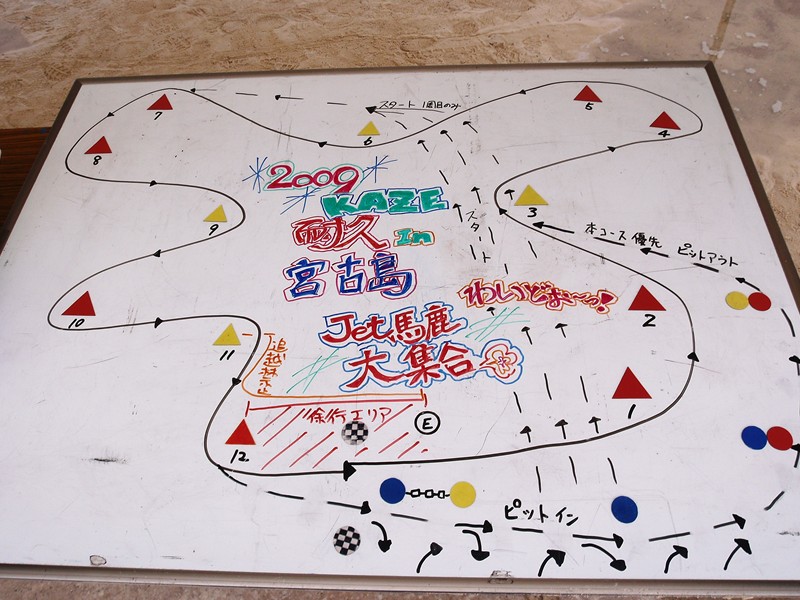 7
スタート 1周目のみ
5
8
6
4
2009
KAZE
3
9
耐久 In
スタート
本コース優先 ピットアウト
宮古島
わいどぉ〜っ!
10
2
Jet馬鹿
11
追越禁止
大集合
1
徐行エリア
E
12
ピットイン